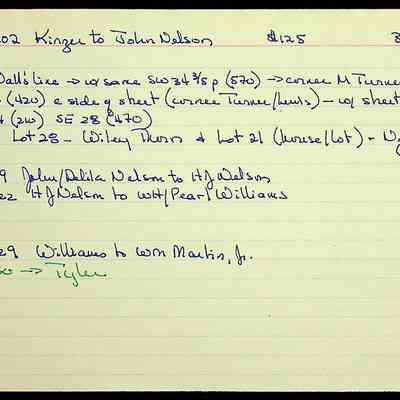 02 Kinzer to John Nelson $125
Wall's line → w/ same SW 34 3/5 p (570) → corner M Turner
(420) e side of street (corner Turner/Lewis) – w/ street
(210) SE 28 (470)
Lot 28 – Wiley Thorn & Lot 21 (house/lot) –
9 John/Delila Nelson to HJ Nelson
22 HJ Nelson to WH/Pearl Williams
29 Williams to Wm Martin, Jr.
→ Tyler